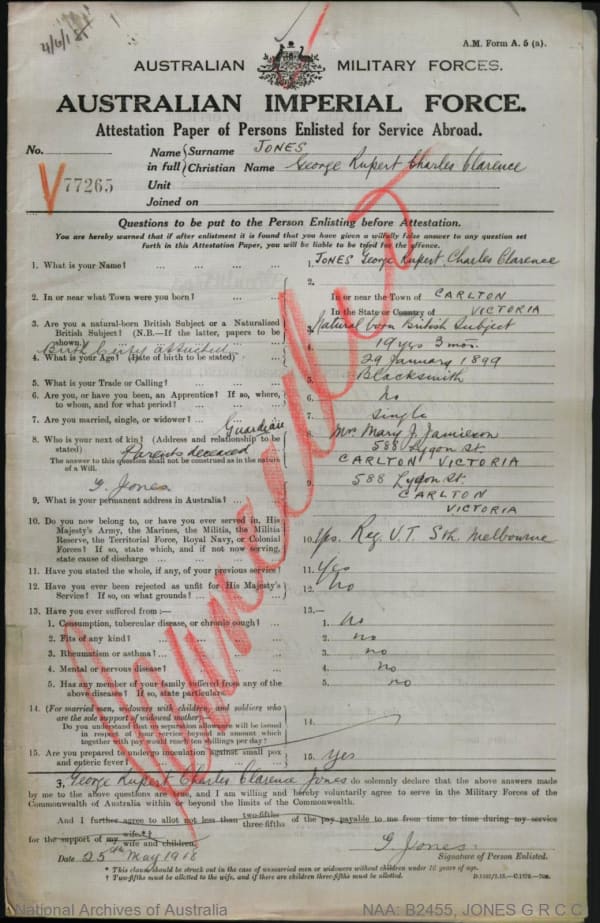 4/6/18
A.M. Form A. 5 (a).
AUSTRALIAN MILITARY FORCES.
AUSTRALIAN IMPERIAL FORCE.
Attestation Paper of Persons Enlisted for Service Abroad.
No. V77265
Name in full { Surname JONES
Christian Name George Rupert Charles Clarence
Unit
Joined on
Questions to be put to the Person Enlisting before Attestation.
You are hereby warned that if after enlistment it is found that you have given a wilfully false answer to any question set
forth in this Attestation Paper, you will be liable to be tried for the offence.
1. What is your Name? ... ... ... ... 1. JONES George Rupert Charles Clarence
2. In or near what Town were you born? ... ... 2. In or near the Town of CARLTON
In the State or Country of VICTORIA
3. Are you a natural-born British Subject or a Naturalized
British Subject? (N.B.—If the latter, papers to be
shown.) 3. Natural born British Subject
Birth Certif attached
4. What is your Age? (Date of birth to be stated) 4. 19 yrs 3 mos.
29 January 1899
5. What is your Trade or Calling? ... ... 5. Blacksmith
6. Are you, or have you been, an Apprentice? If so, where,
to whom, and for what period? ... ... 6. No
7. Are you married, single, or widower? ... ... 7. Single
Guardian
8. Who is your next of kin? (Address and relationship to be
stated) Parents deceased
The answer to this question shall not be construed as in the nature
of a Will.
8. Mrs Mary J. Jamieson
588 Lygon St.
CARLTON VICTORIA
G. Jones
9. What is your permanent address in Australia? ... 9. 588 Lygon St.
CARLTON
VICTORIA
10. Do you now belong to, or have you ever served in, His
Majesty's Army, the Marines, the Militia, the Militia
Reserve, the Territorial Force, Royal Navy, or Colonial
Forces? If so, state which, and if not now serving,
state cause of discharge ... ... 10. Yes. Reg. V.T. Sth. Melbourne
11. Have you stated the whole, if any, of your previous service? 11. Yes
12. Have you ever been rejected as unfit for His Majesty's
Service? If so, on what grounds? ... ... 12. No
13. Have you ever suffered from:— 13.—
1. Consumption, tubercular disease, or chronic cough? ... 1. No
2. Fits of any kind? ... ... ... 2. no
3. Rheumatism or asthma? ... ... ... 3. no
4. Mental or nervous disease? ... ... ... 4. no
5. Has any member of your family suffered from any of the
above diseases? If so, state particulars. 5. no
14. (For married men, widowers with children, and soldiers who
are the sole support of widowed mother)—
Do you understand that no separation allowance will be issued
in respect of your service beyond an amount which
together with pay would reach ten shillings per day? 14.
15. Are you prepared to undergo inoculation against small pox
and enteric fever? ... ... ... 15. Yes
I, George Rupert Charles Clarence Jones do solemnly declare that the above answers made
by me to the above questions are true, and I am willing and hereby voluntarily agree to serve in the Military Forces of the
Commonwealth of Australia within or beyond the limits of the Commonwealth.
And I further agree to allot not less than two-fifths
three fifths of the pay payable to me from time to time during my service
for the support of my wife*†
wife and children.
Date 25th May 1918
G. Jones
Signature of Person Enlisted.
* This clause should be struck out in the case of unmarried men or widowers without children under 16 years of age.
† Two-fifths must be allotted to the wife, and if there are children three-fifths must be allotted.
National Archives of Australia
NAA: B2455, JONES G R C C